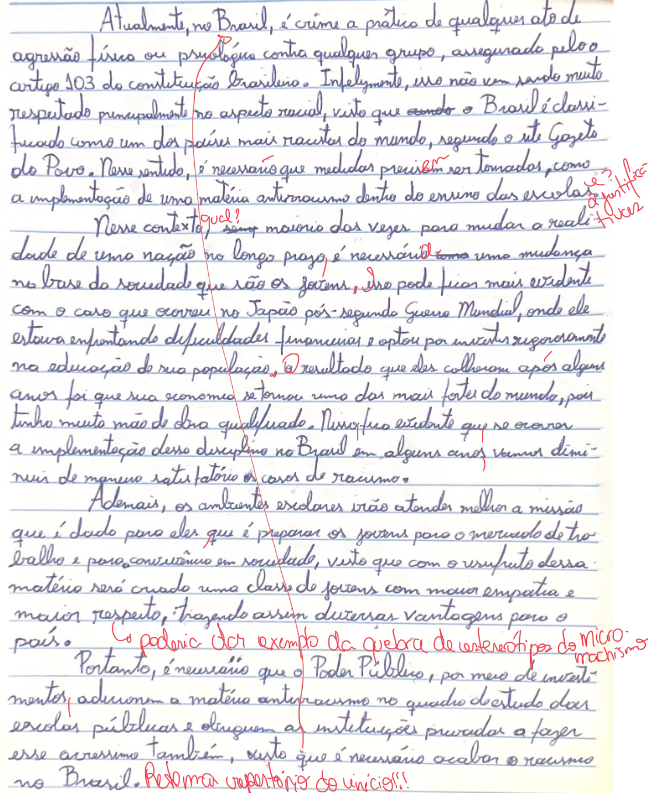 Atualmente, no Brasil, é crime a prática de qualquer ato de
agressão física ou psicológica contra qualquer grupo, assegurado pelo o
artigo 103 da constituição brasileira. Infelizmente, isso não vem sendo muito
respeitado principalmente no aspecto racial, visto que o Brasil é classi-
ficado como um dos países mais racistas do mundo, segundo o site Gazeta
do Povo. Nesse sentido, é necessário que medidas precisem ser tomadas, como
a implementação de uma matéria antirracismo dentro do ensino das escolas.
é?
a justifica
tiva?
Nesse contexto, qual? maioria das vezes para mudar a reali
dade de uma nação no longo prazo, é necessário uma mudança
na base da sociedade que são os jovens, isso pode ficar mais evidente
com o caso que ocorreu no Japão pós-segunda Guerra Mundial, onde ele
estava enfrentando dificuldades financeiras e optou por investir rigorosamente
na educação de sua população. O resultado que eles colheram após alguns
anos foi que sua economia se tornou uma das mais fortes do mundo, pois
tinha muita mão de obra qualificada. Nisso, fica evidente que se ocorrer
a implementação dessa disciplina no Brasil em alguns anos vamos dimi-
nuir de maneira satisfatória os casos de racismo.
Ademais, os ambientes escolares irão atender melhor a missão
que é dada para eles que é preparar os jovens para o mercado de tra
balho e para convivência em sociedade, visto que com o usufruto dessa
matéria será criado uma classe de jovens com maior empatia e
maior respeito, trazendo assim diversas vantagens para o
país. ↳ poderia dar exemplo da quebra de estereótipos do micro-
machismo
Portanto, é necessário que o Poder Público, por meio de investi-
mentos, adicionem a matéria antirracismo no quadro de estudo das
escolas públicas e obriguem as instituições privadas a fazer
esse acréssimo também, visto que é necessário acabar o racismo
no Brasil. Retomar repertório do início!!!